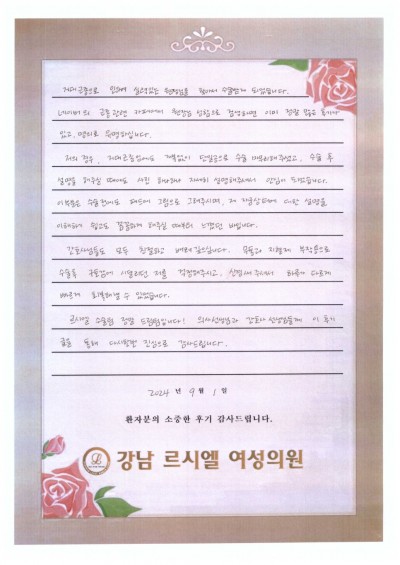 거대근종으로 인하여 실력있는 원장님을 찾아서 수술받게 되었습니다.
네이버의 근종 관련 카페에서 원장님 성함으로 검색하면 이미 정말 많은 후기가
있고, 명의로 유명하십니다.
저의 경우, 거대근종임에도 개복없이 단일공으로 수술 해주셨고, 수술 후
설명을 해주실 때에도 사진 하나하나 자세히 설명해주셔서 안심이 되었습니다.
수술 전에도 패드에 그림으로 그려주시며, 제 자궁상태에 대한 설명을
이해하기 쉽고도 꼼꼼하게 해주실 때부터 느꼈던 바입니다.
간호사님들도 모두 친절하고 배려 깊으십니다. 무통과 지혈제 부작용으로
수술 후 구토감에 시달리던 저를 걱정해주시고, 신경써주셔서 하루가 다르게
빠르게 회복해갈 수 있었습니다.
르시엘 수술을 정말 드립니다! 의사선생님과 간호사 선생님들께 이 후기
글을 통해 다시한번 진심으로 감사드립니다.
2024 년 9 월 1 일
환자분의 소중한 후기 감사드립니다.
강남 르시엘 여성의원